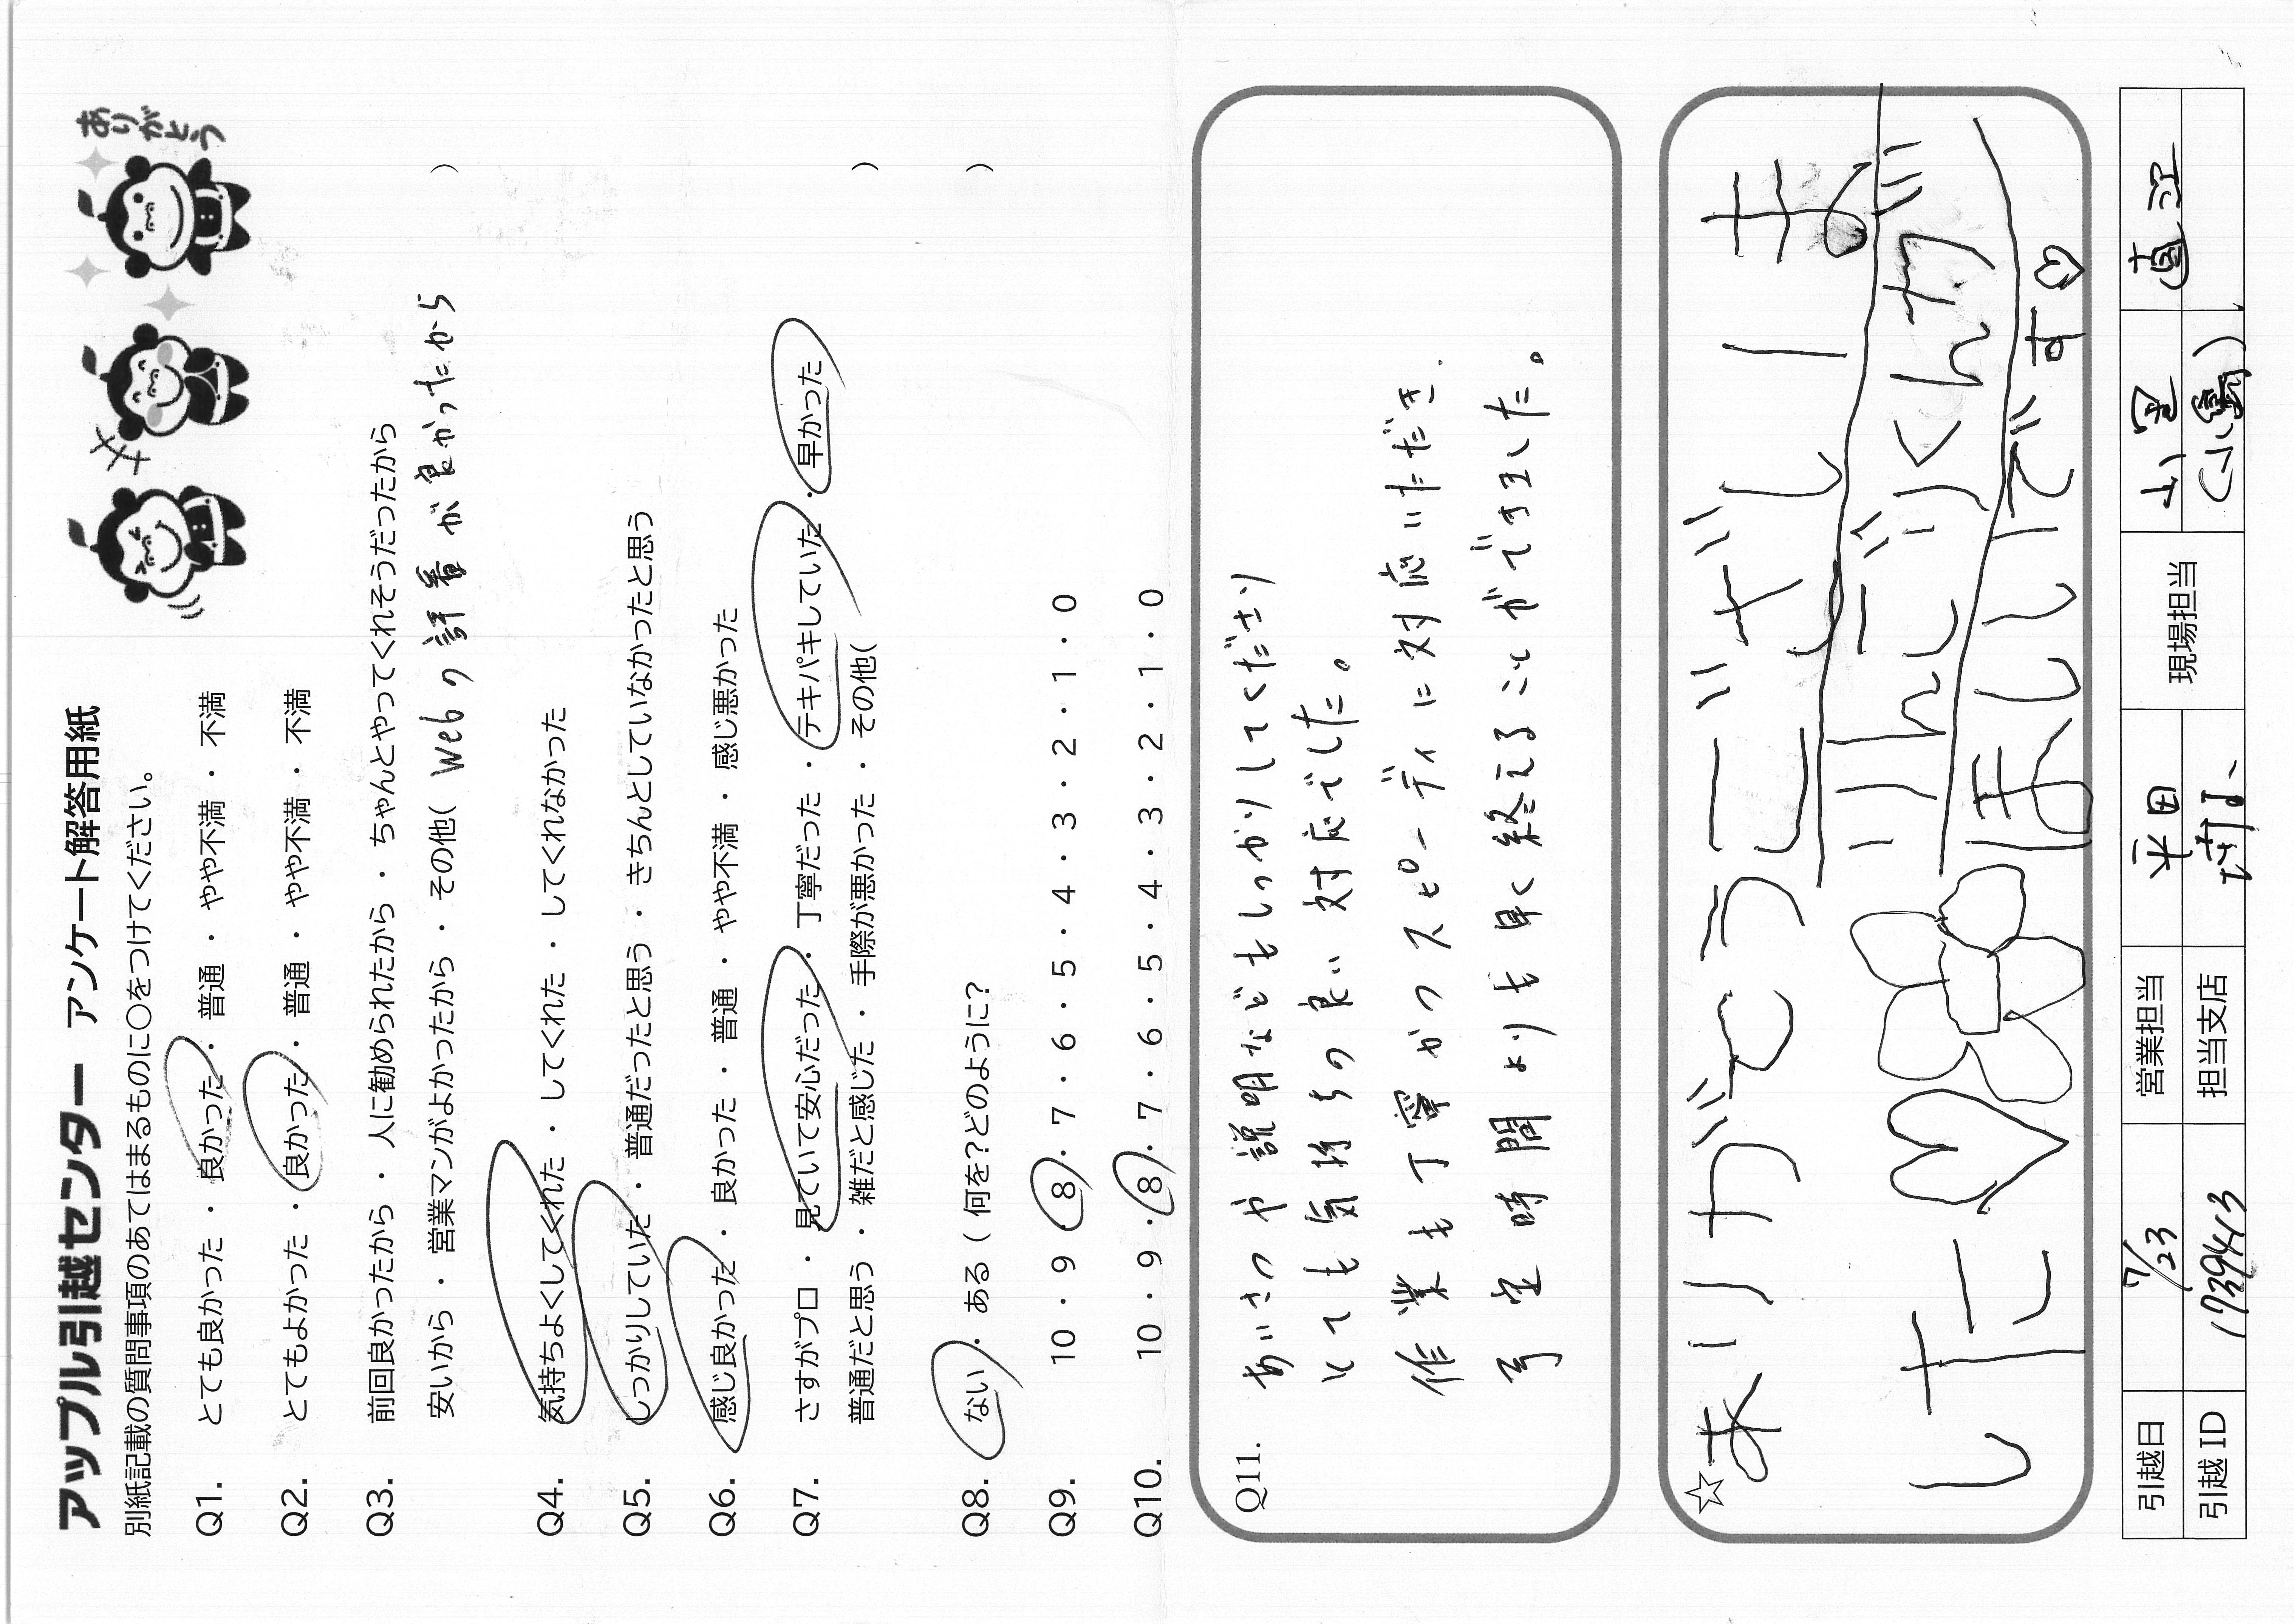 アップル引越センター アンケート解答用紙
ありがとう
別紙記載の質問事項のあてはまるものに○をつけてください。
Q1. とても良かった ・ 良かった ・ 普通 ・ やや不満 ・ 不満
Q2. とてもよかった ・ 良かった ・ 普通 ・ やや不満 ・ 不満
Q3. 前回良かったから ・ 人に勧められたから ・ ちゃんとやってくれそうだったから
安いから ・ 営業マンがよかったから ・ その他( Webの評番が良かったから )
Q4. 気持ちよくしてくれた ・ してくれた ・ してくれなかった
Q5. しっかりしていた ・ 普通だったと思う ・ きちんとしていなかったと思う
Q6. 感じ良かった ・ 良かった ・ 普通 ・ やや不満 ・ 感じ悪かった
Q7. さすがプロ ・ 見ていて安心だった ・ 丁寧だった ・ テキパキしていた ・ 早かった
普通だと思う ・ 雑だと感じた ・ 手際が悪かった ・ その他( )
Q8. ない ・ ある ( 何を?どのように? )
Q9. 10 ・ 9 ・ 8 ・ 7 ・ 6 ・ 5 ・ 4 ・ 3 ・ 2 ・ 1 ・ 0
Q10. 10 ・ 9 ・ 8 ・ 7 ・ 6 ・ 5 ・ 4 ・ 3 ・ 2 ・ 1 ・ 0
Q11. あいさつや説明などもしっかりしてくださり
とても気持ちの良い対応でした。
作業も丁寧かつスピーディに対応いただき、
予定時間よりも早く終えることができました。
☆ ありがとうございま
した
りんごジくんが
ほしいです♡
引越日 7/23 営業担当 平田 現場担当 山里 直江
引越ID 1739443 担当支店